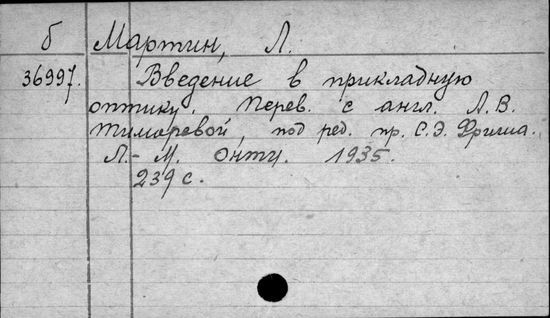 б Мартин, Л.
36997. Введение в прикладную
оптику. Перев. с англ. Л.В.
Тимаревой, под ред. пр. С.Э. Фриша.
Л.-М. ОНТИ. 1935.
239 с.